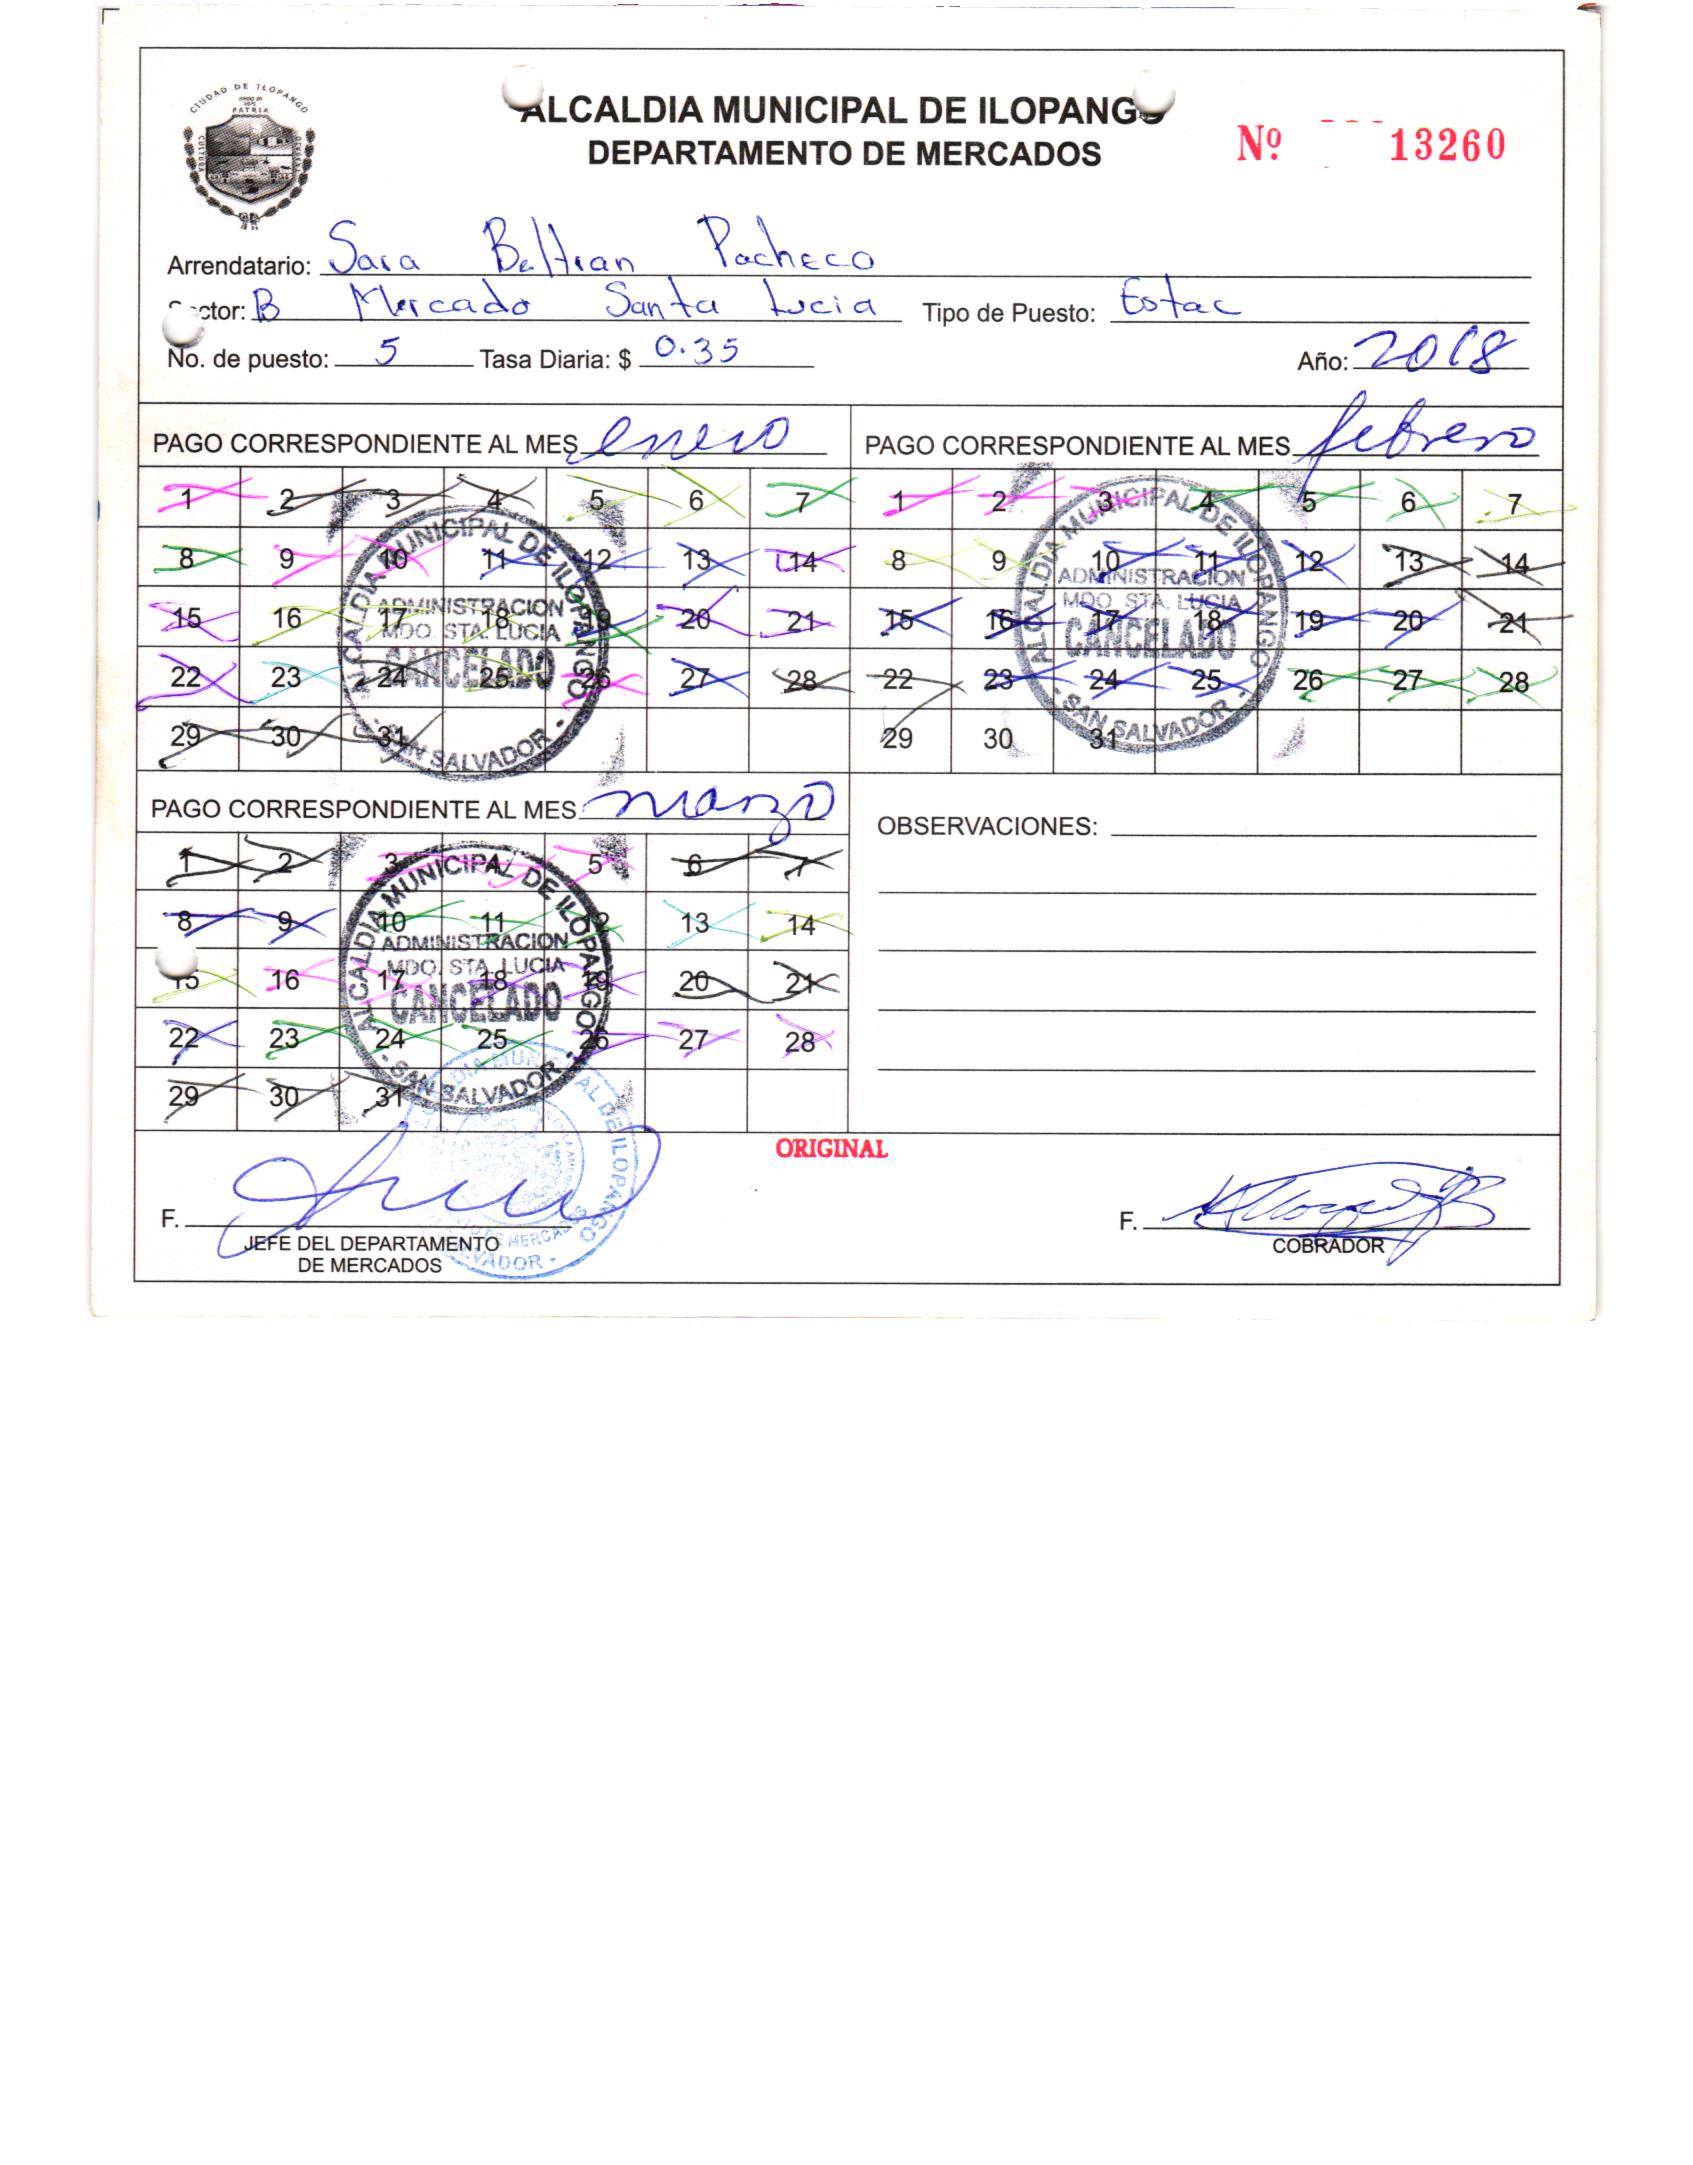 CIUDAD DE ILOPANGO
PATRIA
CULTURA
ALCALDIA MUNICIPAL DE ILOPANGO
DEPARTAMENTO DE MERCADOS
Nº 13260
Arrendatario: Sara Beltran Pacheco
Sector: B Mercado Santa Lucia Tipo de Puesto: Estac
No. de puesto: 5 Tasa Diaria: $ 0.35 Año: 2018
PAGO CORRESPONDIENTE AL MES enero
1 2 3 4 5 6 7
8 9 10 11 12 13 14
15 16 17 18 19 20 21
22 23 24 25 26 27 28
29 30 31
ALCALDIA MUNICIPAL DE ILOPANGO
ADMINISTRACION
MDO. STA. LUCIA
CANCELADO
- SAN SALVADOR -
PAGO CORRESPONDIENTE AL MES febrero
1 2 3 4 5 6 7
8 9 10 11 12 13 14
15 16 17 18 19 20 21
22 23 24 25 26 27 28
29 30 31
ALCALDIA MUNICIPAL DE ILOPANGO
ADMINISTRACION
MDO. STA. LUCIA
CANCELADO
- SAN SALVADOR -
PAGO CORRESPONDIENTE AL MES marzo
1 2 3 4 5 6 7
8 9 10 11 12 13 14
15 16 17 18 19 20 21
22 23 24 25 26 27 28
29 30 31
ALCALDIA MUNICIPAL DE ILOPANGO
ADMINISTRACION
MDO. STA. LUCIA
CANCELADO
- SAN SALVADOR -
OBSERVACIONES:
ORIGINAL
F.
JEFE DEL DEPARTAMENTO
DE MERCADOS
F.
COBRADOR